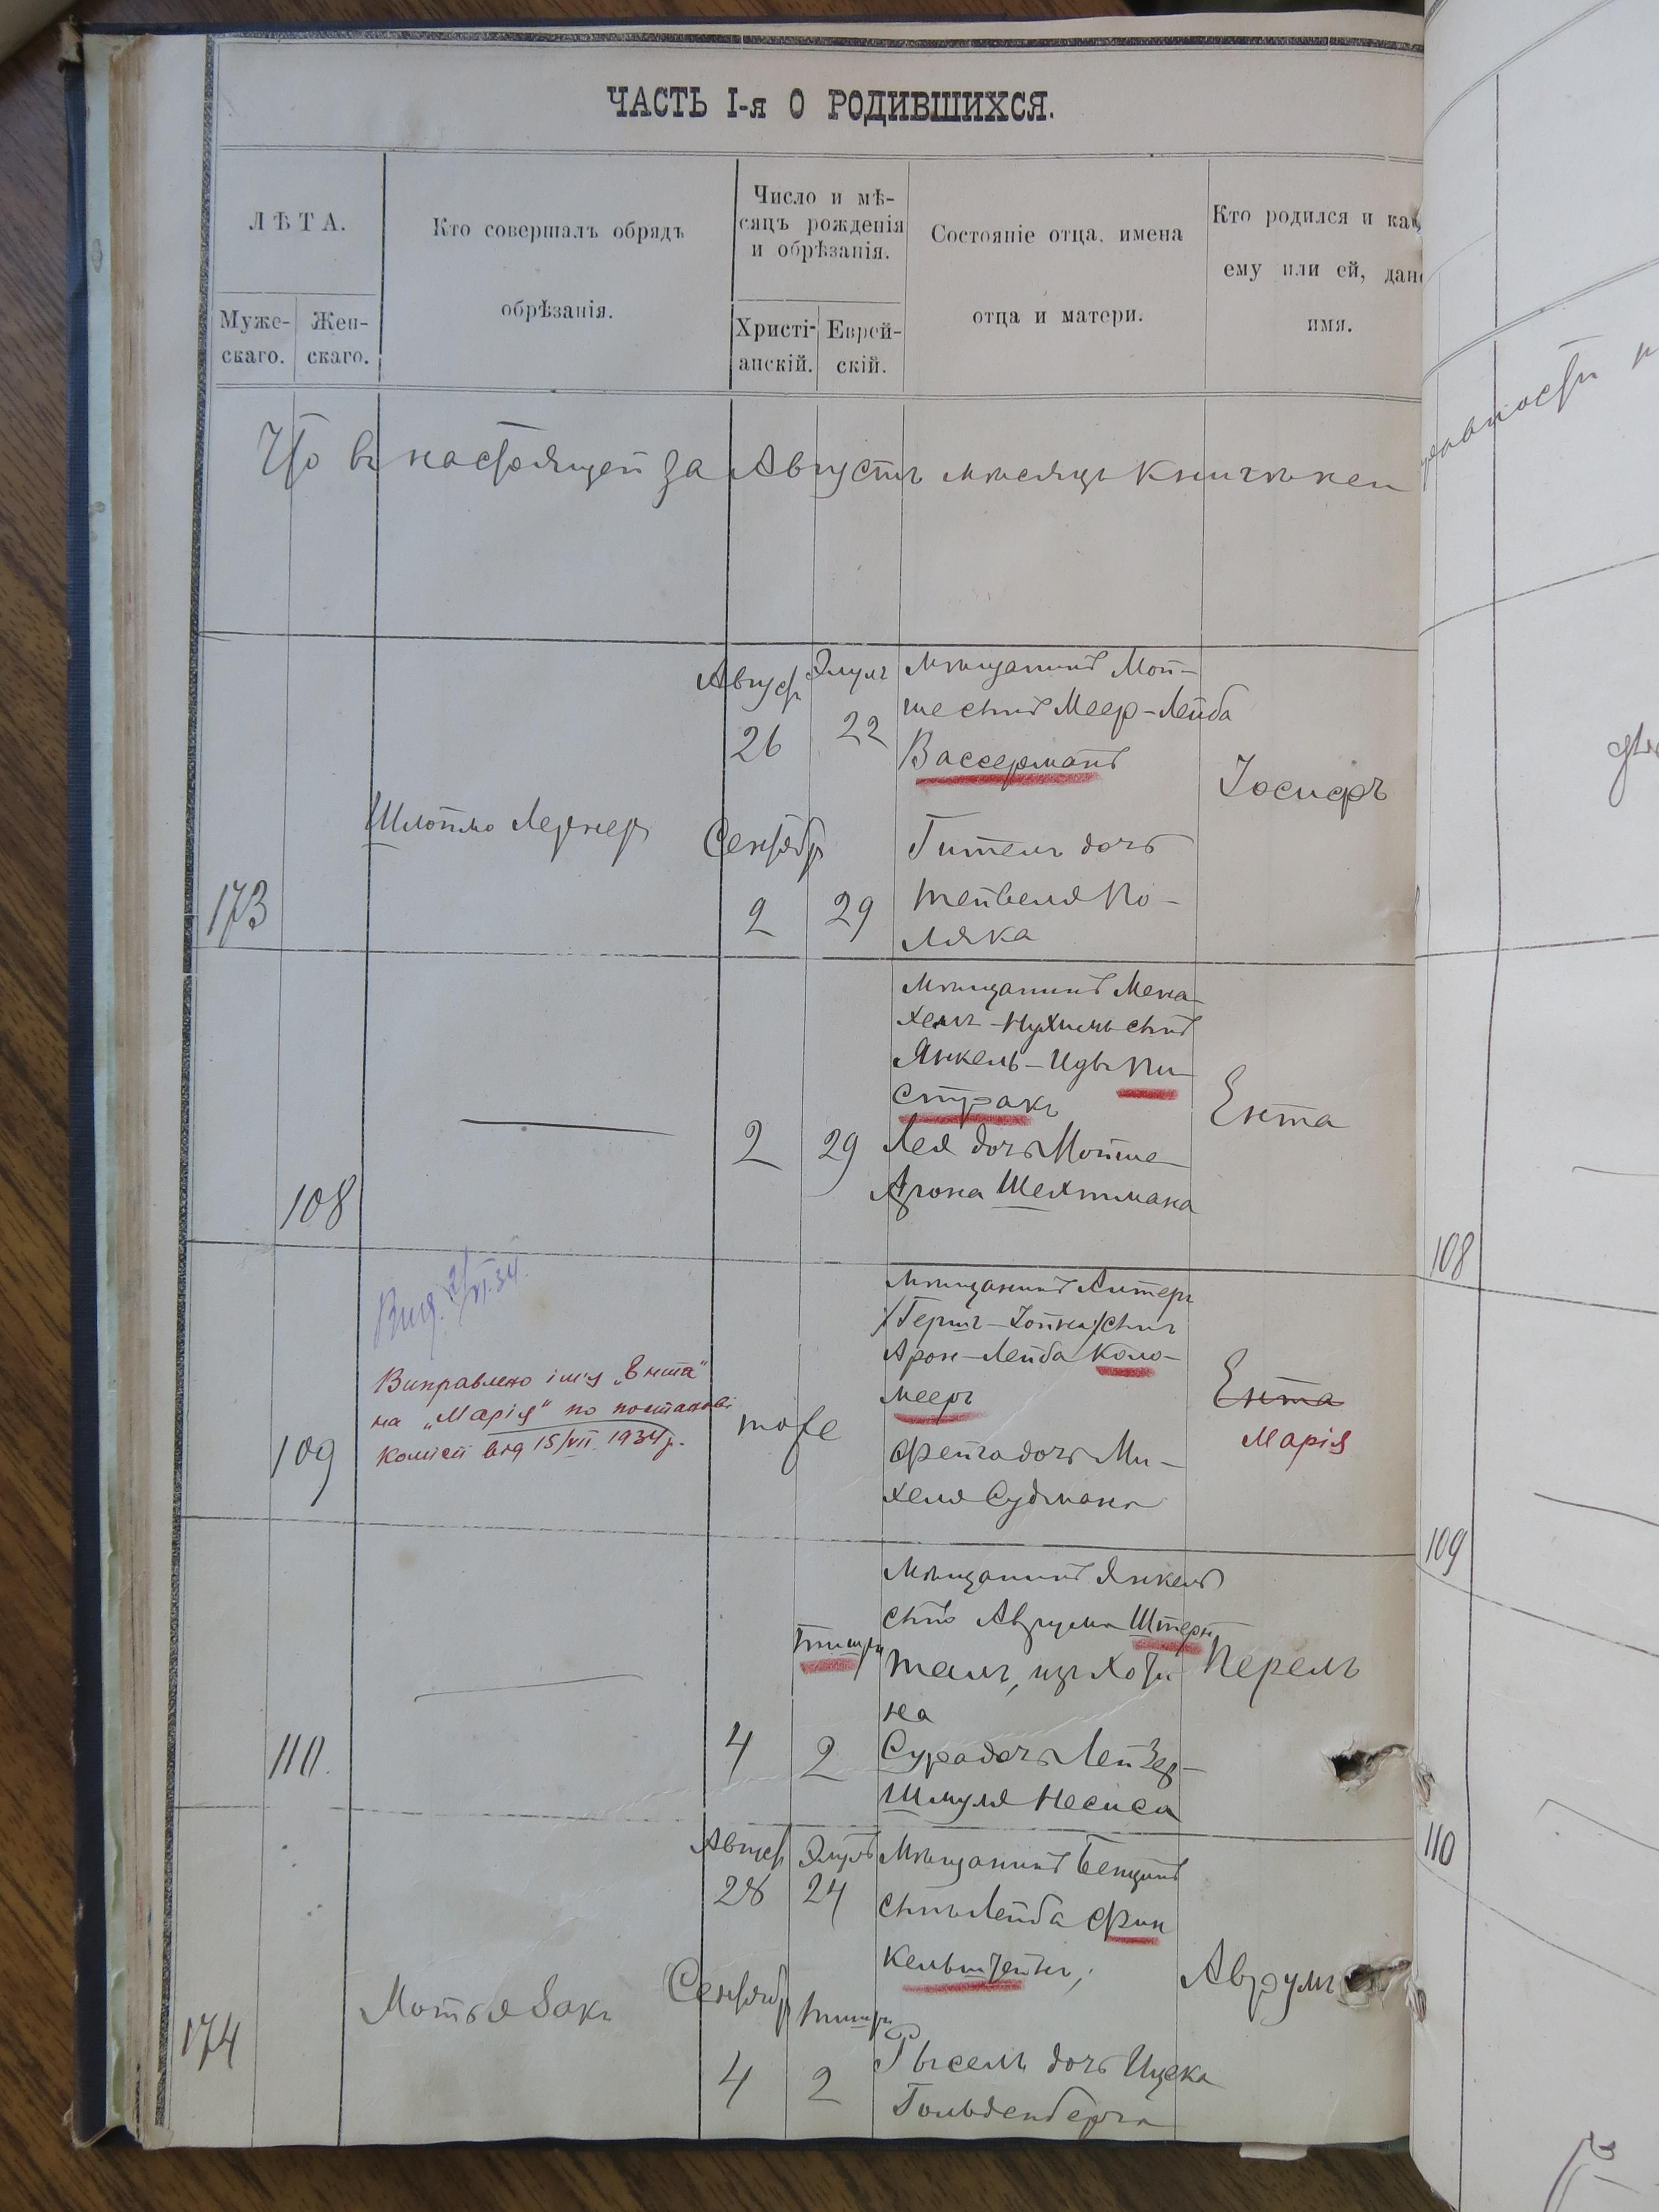 ЧАСТЬ I-я О РОДИВШИХСЯ.
ЛѢТА.
Муже-
скаго.
Жен-
скаго.
Кто совершалъ обрядъ
обрѣзанія.
Число и мѣ-
сяцъ рожденія
и обрѣзанія.
Христі-
анскій.
Еврей-
скій.
Состояніе отца, имена
отца и матери.
Кто родился и как
ему или ей, дано
имя.
Что въ настоящей за Августъ мѣсяцъ книгѣ
173
Шлойме Лернер
Август
26
Элулъ
22
Сентябр
2
29
Мѣщанинъ Мой-
ше сынъ Меер-Лейба
Вассерманъ
Гитель дочь
Тейвеля По-
ляка
Іосифъ
108
2
29
Мѣщанинъ Мена-
хемъ-Нухимъ сынъ
Янкель-Иды Пи-
стракъ
Лея дочь Мойше
Арона Шехтмана
Ента
108
109
2/VI.34
Виправлено ім'я „Ента"
на „Марія" по постанові
комісії від 15/VII 1934 р.
тоже
Мѣщанинъ Алтеръ
/Гершъ-Хойна/ сынъ
Арон-Лейба Коло-
мееръ
Фейга дочь Ми-
хеля Судмана
Ента
Марія
109
110.
Тишри
4
2
Мѣщанинъ Янкель
сынъ Аврума Штерн
таль, изъ Хоти
на
Сура дочь Лейзер-
Шмуля Несиса
Перель
110
174
Мотья Закъ
Август
28
Элулъ
24
Сентябр
4
Тишри
2
Мѣщанинъ Бенционъ
сынъ Лейба Фин
кельштейнъ,
Рысель дочь Ицека
Гольденберга
Аврумъ